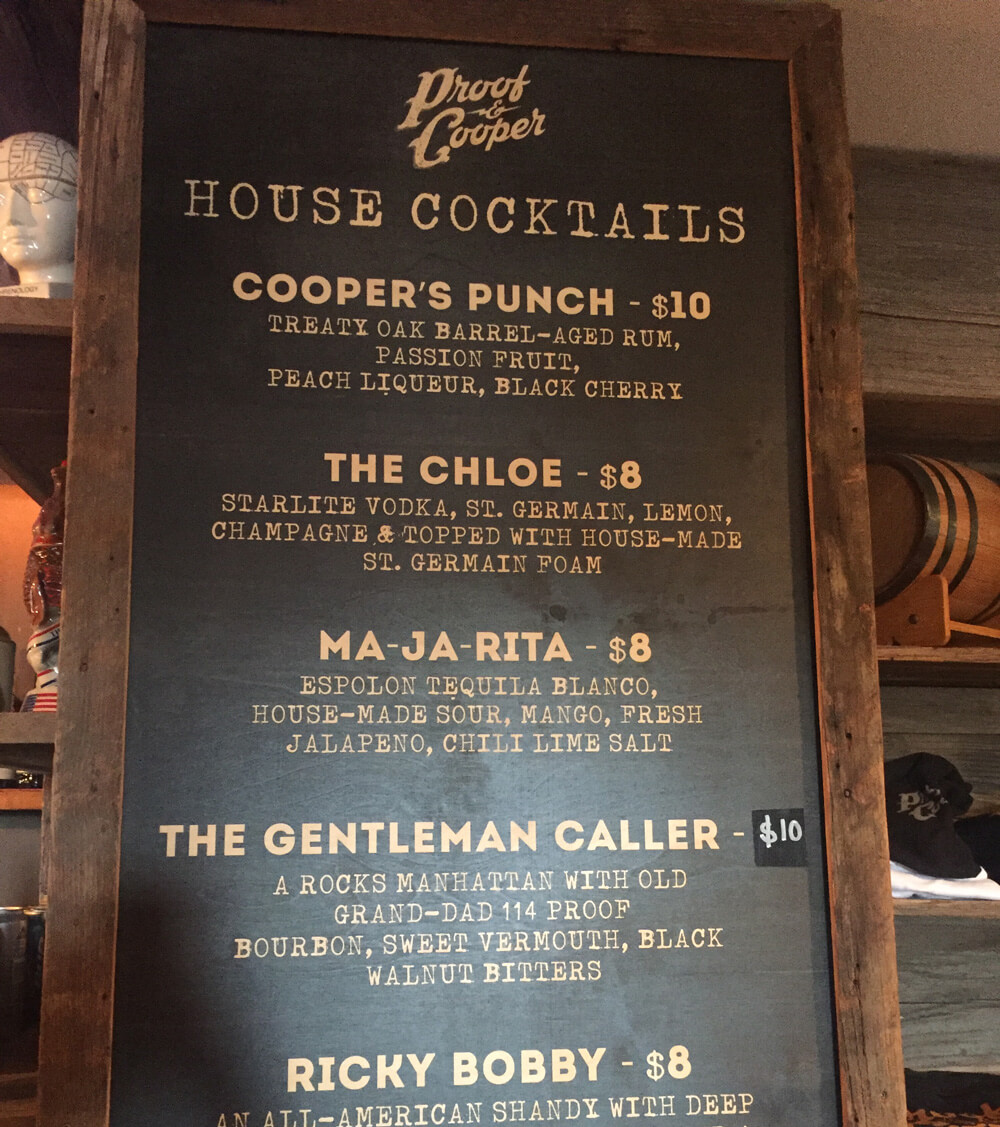 Proof
&
Cooper
HOUSE COCKTAILS
COOPER'S PUNCH - $10
TREATY OAK BARREL-AGED RUM,
PASSION FRUIT,
PEACH LIQUEUR, BLACK CHERRY
THE CHLOE - $8
STARLITE VODKA, ST. GERMAIN, LEMON,
CHAMPAGNE & TOPPED WITH HOUSE-MADE
ST. GERMAIN FOAM
MA-JA-RITA - $8
ESPOLON TEQUILA BLANCO,
HOUSE-MADE SOUR, MANGO, FRESH
JALAPENO, CHILI LIME SALT
THE GENTLEMAN CALLER - $10
A ROCKS MANHATTAN WITH OLD
GRAND-DAD 114 PROOF
BOURBON, SWEET VERMOUTH, BLACK
WALNUT BITTERS
RICKY BOBBY - $8
AN ALL-AMERICAN SHANDY WITH DEEP